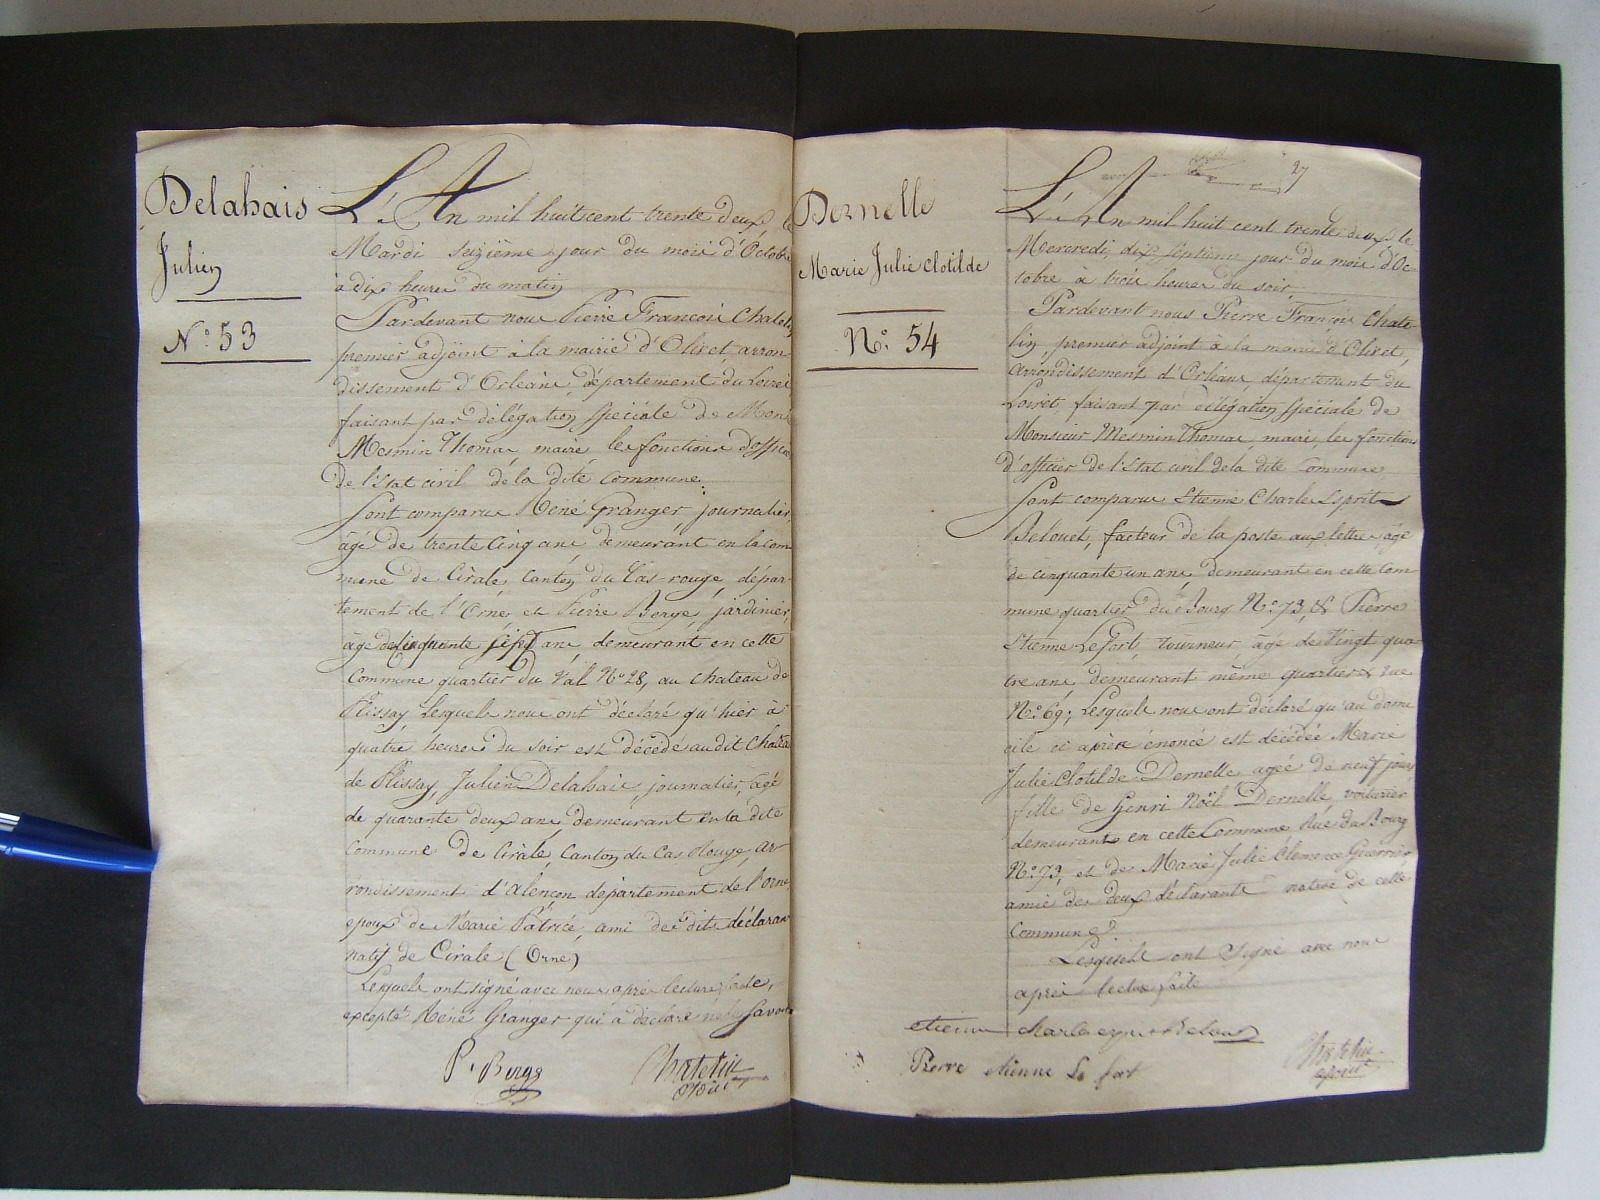 Delahais
Julien
N.° 53
L'An mil huit cent trente deux, le
Mardi seizième jour du mois d'Octobre
à dix heures du matin
Pardevant nous Pierre François Chatelin
premier adjoint à la mairie d'Olivet, arron
dissement d'Orléans, département du Loiret
faisant par délégation spéciale de Mons
Mesmin Thomas, maire, les fonctions d'officier
de l'Etat civil de la dite Commune.
Sont comparus René Granger journalier,
âgé de trente cinq ans demeurant en la com
mune de Cirale, Canton du Cas-rouge, dépar-
tement de l'Orne, et Pierre Bergé, jardinier,
âgé de cinquante sept ans, demeurant en cette
Commune quartier du Val N° 28, au chateau de
Plissay, Lesquels nous ont déclaré qu'hier à
quatre heures du soir est décédé audit Chateau
de Plissay, Julien Delahais, journalier, agé
de quarante deux ans, demeurant en la dite
Commune de Cirale, Canton du Cas Rouge, ar
rondissement d'alençon, département de l'orne,
epoux de Marie Patrice, ami des dits déclarans
natif de Cirale (Orne)
Lesquels ont signé avec nous après lecture faite,
excepté René Granger qui a déclaré ne le savoir
P. Berge
Chatelin
adjoint
27
Dernelle
Marie Julie Clotilde
N.° 54
L'An mil huit cent trente deux le
Mercredi, dix septième jour du mois d'Oc-
tobre à trois heures du soir,
Pardevant nous Pierre François Chate-
lin, premier adjoint à la mairie d'Olivet,
arrondissement d'Orléans, département du
Loiret, faisant par délégation spéciale de
Monsieur Mesmin Thomas maire, les fonctions
d'officier de l'Etat civil de la dite Commune
Sont comparus Etienne Charles Esprit
Belouet, facteur de la poste aux lettres âgé
de cinquante un ans, demeurant en cette Com-
mune quartier du Bourg N.° 73, & Pierre
Etienne LeFort, tourneur, âgé de Vingt qua-
tre ans demeurant même quartier & rue
N.° 69; Lesquels nous ont déclaré qu'au domi
cile ci après énoncé est décédée Marie
Julie Clotilde Dernelle agée de neuf jours
fille de Henri Noël Dernelle, voiturier
demeurant en cette Commune Rue du Bourg
N.° 73, et de Marie Julie Clemence Guerrier
amie des deux déclarants native de cette
Commune
Lesquels ont Signé avec nous
après lecture faite
etienne charles esprit Belouet
Pierre etienne Le fort
Chatelin
adjoint